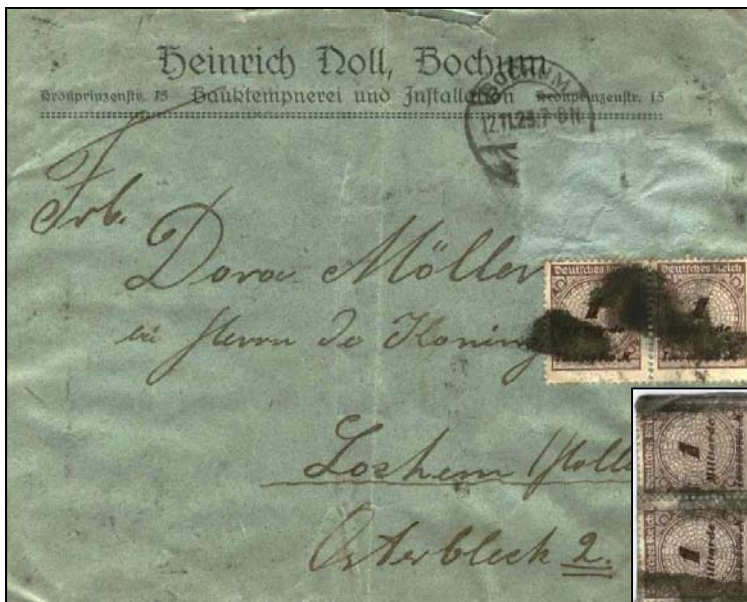 Heinrich Noll, Bochum
Kronprinzenstr. 15 Bauklempnerei und Installation Kronprinzenstr. 15
BOCHUM
12.11.23.7-8N
Frl.
Dora Möller
bei Herrn de Koning
Lochem (Holl
Osterbleek 2.
Deutsches Reich Deutsches Reich
1 1
Milliarde
1
Milliarde
1
Milliarde